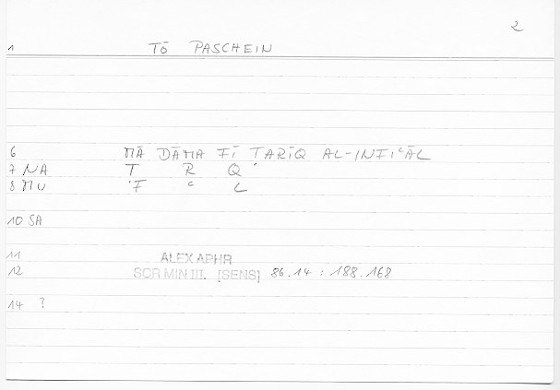 2
1 TŌ PASCHEIN
6 MĀ DĀMA FĪ ṬARĪQ AL-INFIʿĀL
7 NA Ṭ R Q
8 MU F ʿ L
10 SA
11 ALEX APHR
12 SCR MIN III. [SENS] 86.14 : 188.168
14 ?